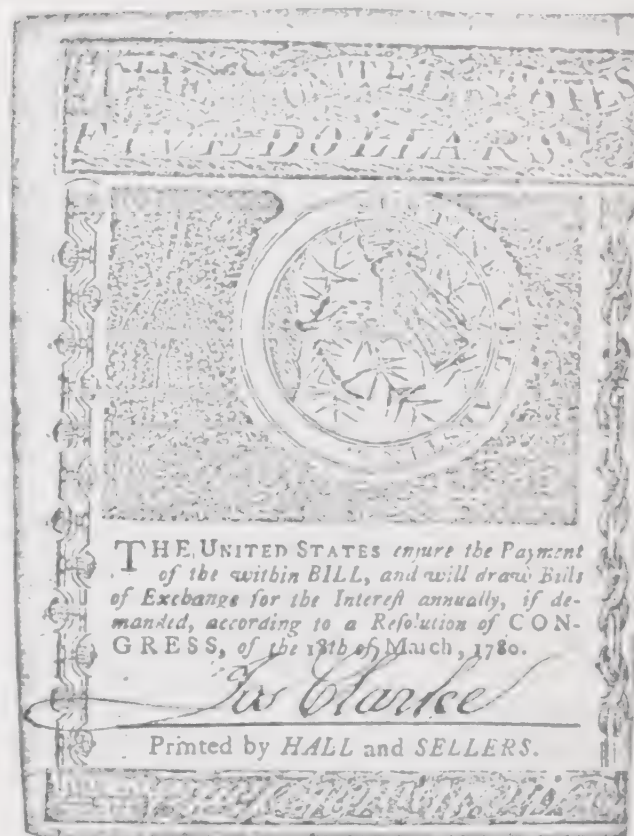 FIVE DOLLARS
THE UNITED STATES enſure the Payment
of the within BILL, and will draw Bills
of Exchange for the Intereſt annually, if de-
manded, according to a Reſolution of CON-
GRESS, of the 18th of March, 1780.
Clarke
Printed by HALL and SELLERS.